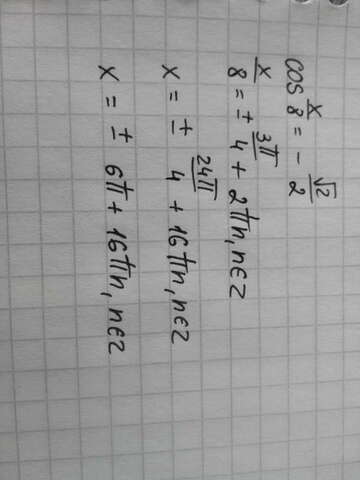 cos x/8 = - √2/2
x/8 = ± 3π/4 + 2πn, n∈z
x = ± 24π/4 + 16πn, n∈z
x = ± 6π + 16πn, n∈z